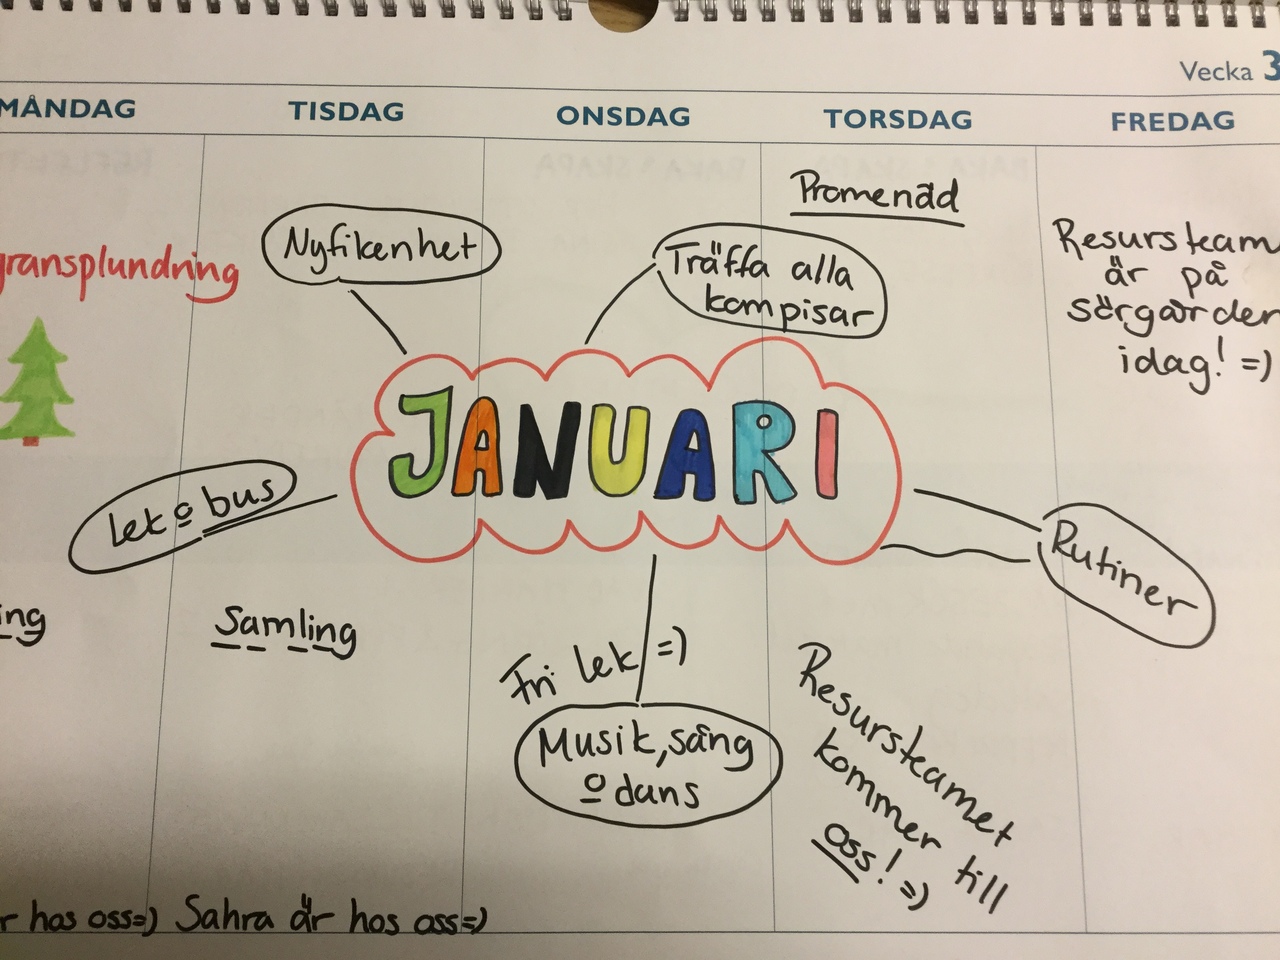 Vecka 3
MÅNDAG
TISDAG
ONSDAG
TORSDAG
FREDAG
Promenad
Nyfikenhet
Träffa alla
kompisar
Resursteam
är på
sörgården
idag! =)
gransplundring
JANUARI
lek o bus
Rutiner
ing
Samling
Fri lek =)
Musik, sång
o dans
Resursteamet
kommer till
oss! =)
r hos oss=) Sahra är hos oss=)